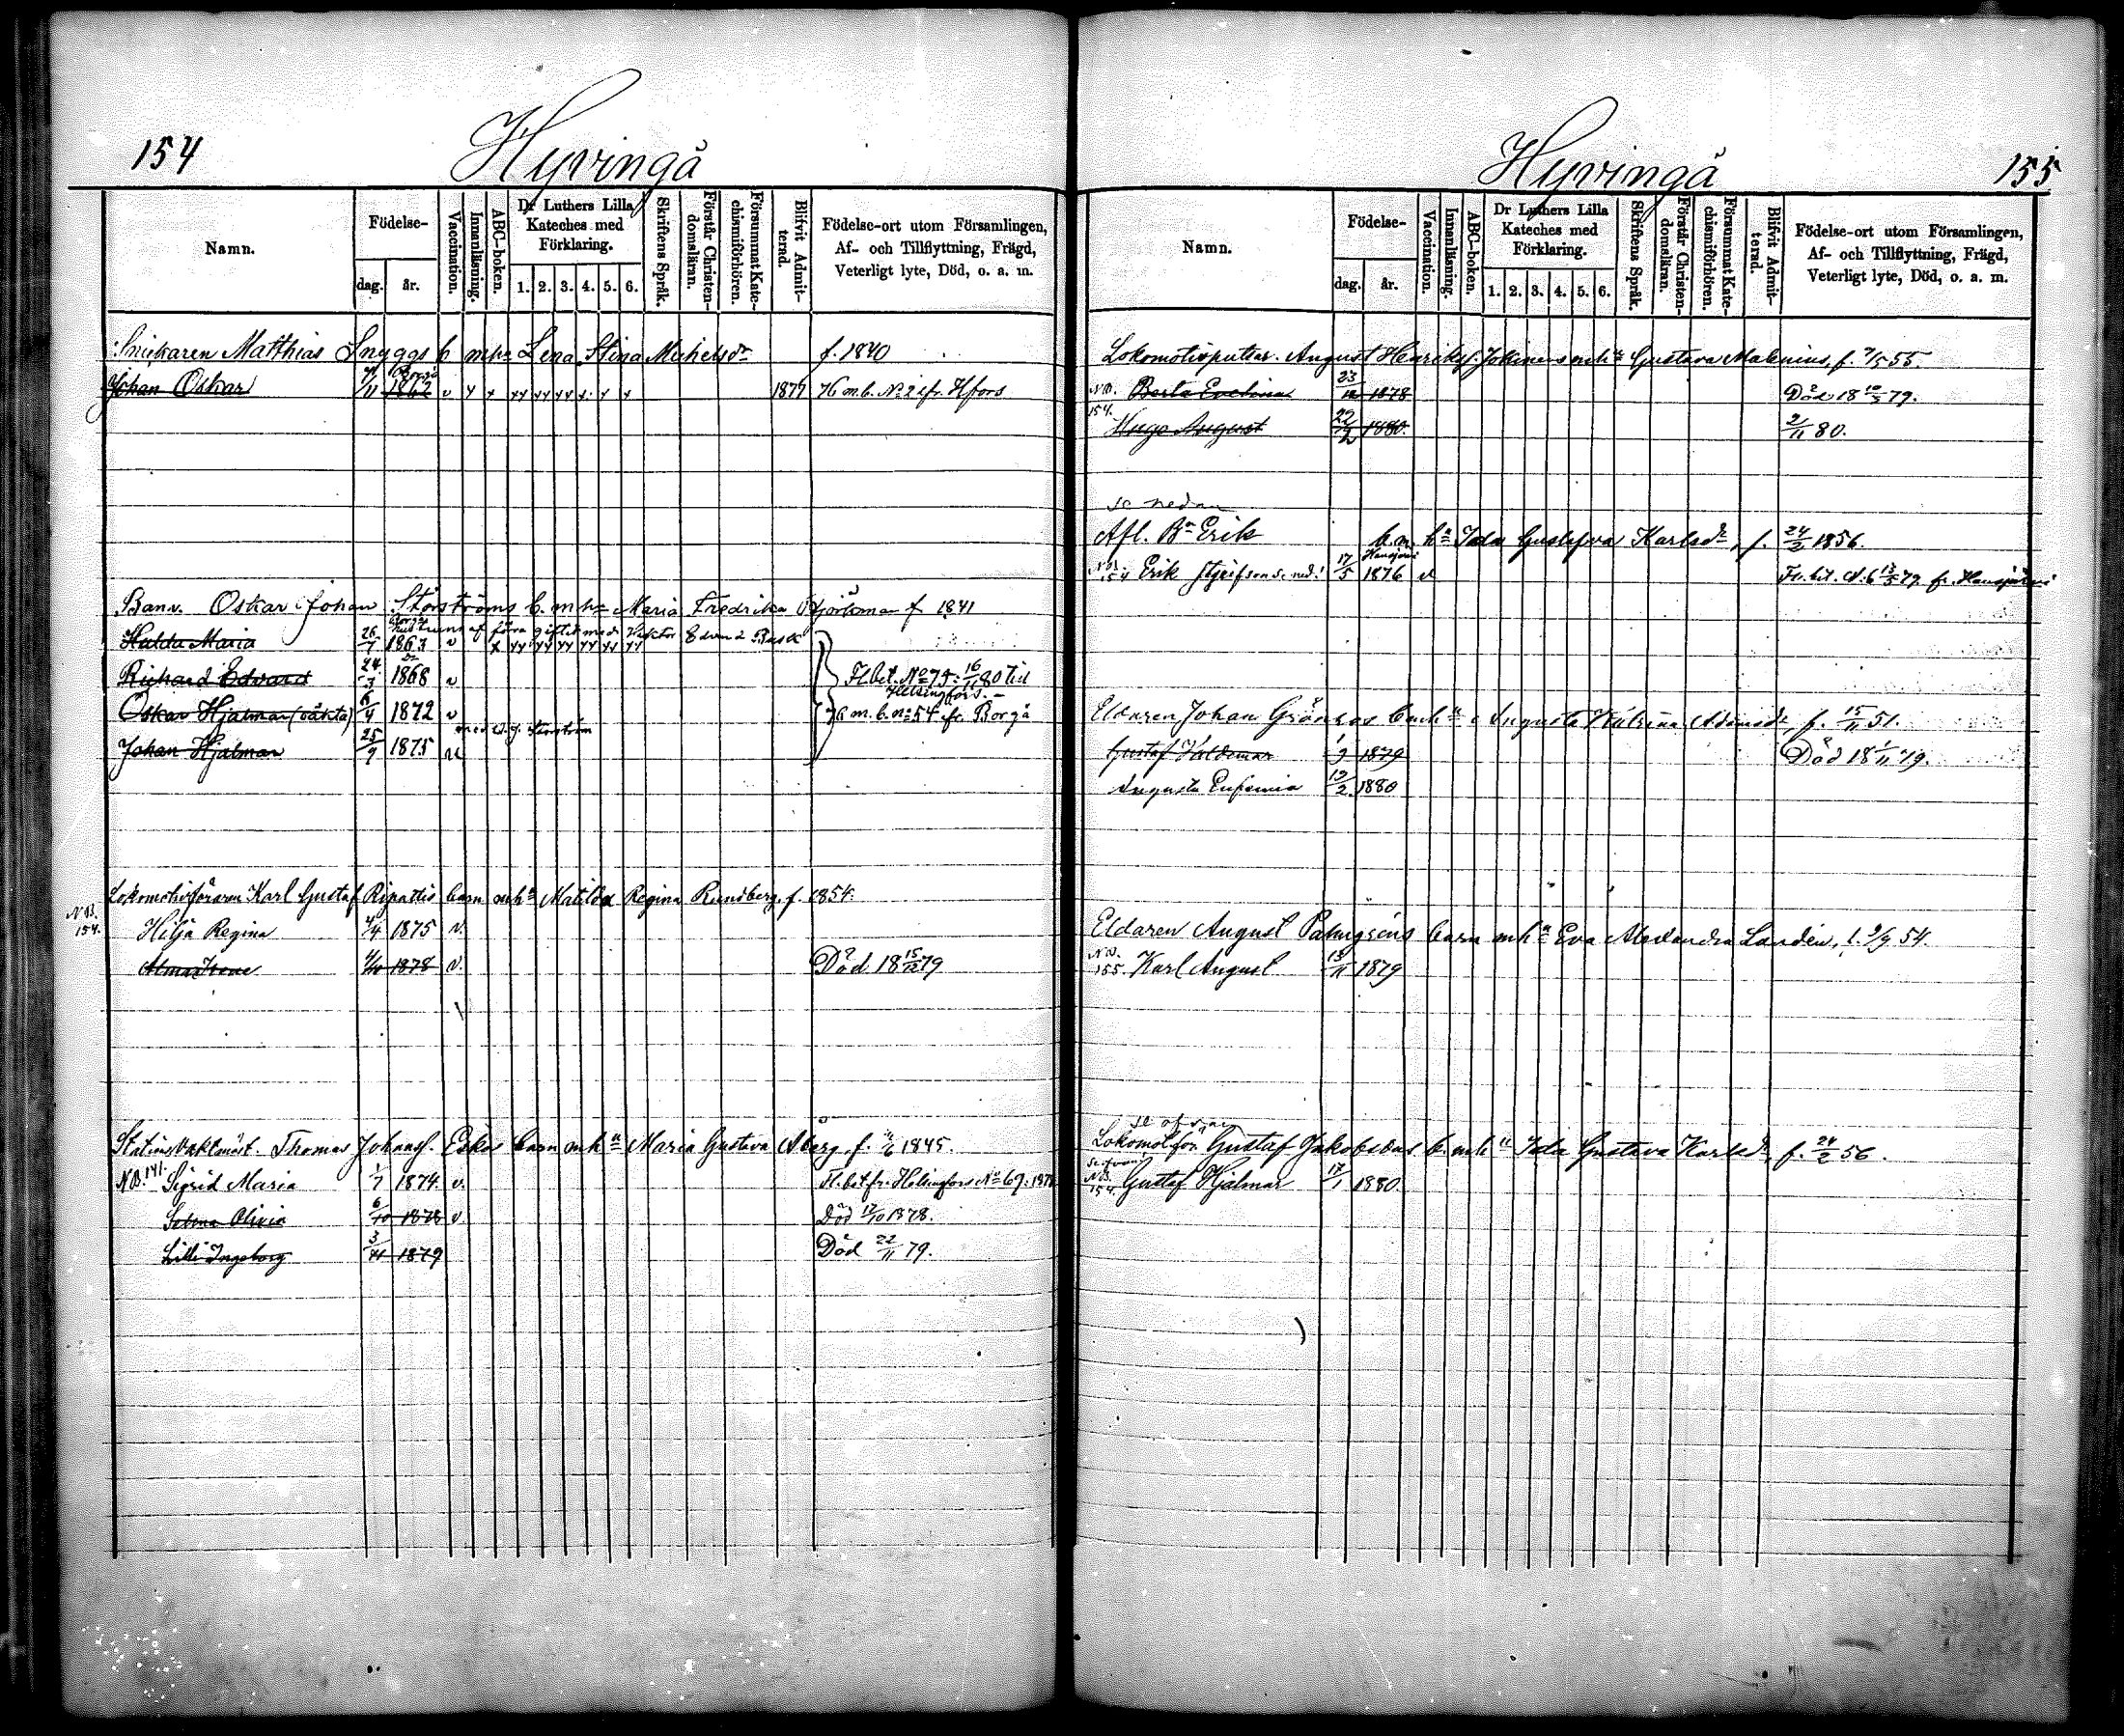 154
Hyvingå
Namn.
Födelse-
dag.
år.
Vaccination.
Innanläsning.
ABC-boken.
Dr Luthers Lilla
Kateches med
Förklaring.
1. 2. 3. 4. 5. 6.
Skriftens Språk.
Förstår Christen-
domsläran.
Försummat Kate-
chismiförhören.
Blifvit Admit-
terad.
Födelse-ort utom Församlingen,
Af- och Tillflyttning, Frägd,
Veterligt lyte, Död, o. a. m.
Snickaren Matthias Snyggs b mha Lena Stina Michelsdr f. 1840
Borgå
Johan Oskar 1862 v 1877 76 m.b. No 2 ifr. Hfors
Banv. Oskar Johan Störströms b. mha Maria Fredrika f 1841
Hulda Maria 26/7 1863 v
Richard Edvard 24/3 1868 v Fl. bet. No 75. 16/11 80 till
Helsingfors. –
Oskar Hjalmar (oäkta) 6/4 1872 v 76 m. b. no 54 fr. Borgå
Johan Hjalmar 25/9 1875 v
Lokomotivföraren Karl Gustaf Ripattis barn mha Matilda Regina Rundberg. f. 1854.
N.B. 154. Hilja Regina 4/4 1875 v.
Alma Irene 1878 v. Död 18 15/12 79
Stations Vaktmäst. Thomas Johansf. Eskos barn mha Maria Gustava Åberg. f. 1845.
N.B. 141. Sigrid Maria 1/7 1874. v. Fl. bet. fr. Helsingfors No 69. 1878
Sabina Olivia 6/10 1878 v. Död 12/10 1878.
Lilli Ingeborg 3/11 1879 Död 22/11 79.
Hyvingå
155
Namn.
Födelse-
dag.
år.
Vaccination.
Innanläsning.
ABC-boken.
Dr Luthers Lilla
Kateches med
Förklaring.
1. 2. 3. 4. 5. 6.
Skriftens Språk.
Förstår Christen-
domsläran.
Försummat Kate-
chismiförhören.
Blifvit Admit-
terad.
Födelse-ort utom Församlingen,
Af- och Tillflyttning, Frägd,
Veterligt lyte, Död, o. a. m.
Lokomotivputsar. August Henriksf. mha Gustava Malenius, f. 7/5 55.
N.B. 154. Berta Evelina 23/12 1878 Död 18 79.
Hugo August 22/2 1880. 2/11 80.
se nedan
Afl. Bn Erik b. m. ha Ida Gustafva Karlsdr, f. 24/2 1856.
Hausjärvi
N.B. 154 Erik 17/5 1876 v Fl. bet. N. 6 13/3 79 fr. Hausjärvi
Eldaren Johan Grönroos b mha Augusta Katrina f. 15/11 51.
Gustaf Valdemar 1/9 1879 Död 18 1/11 79.
Augusta Eufemia 12/2 1880
Eldaren August Palmgrens barn mha Eva Alexandra Landén, f. 2/9 54.
N.B. 155. Karl August 13/11 1879
se ofvan
Lokomotför. Gustaf Jakobssons b. mha Ida Gustava Karlsdr, f. 24/2 56.
se ofvan
N.B. 154 Gustaf Hjalmar 17/1 1880.